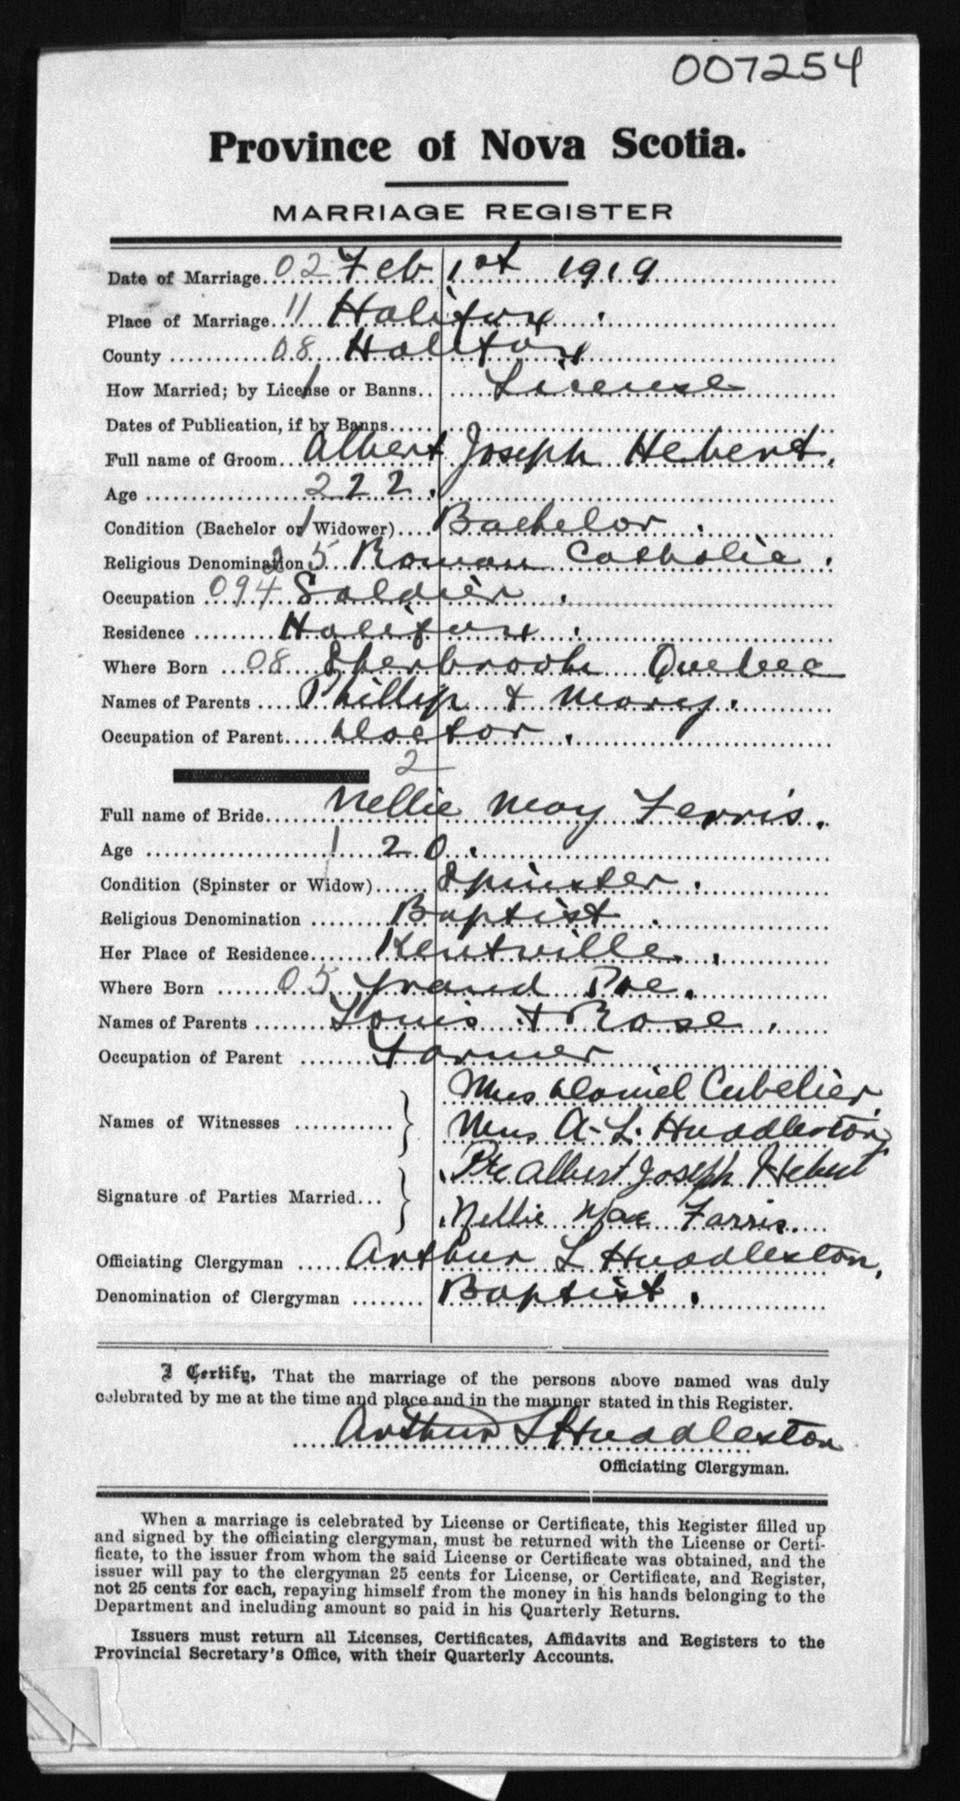 007254
Province of Nova Scotia.
MARRIAGE REGISTER
Date of Marriage 02 Feb 1st 1919
Place of Marriage 11 Halifax.
County 08 Halifax
How Married; by License or Banns 1 License
Dates of Publication, if by Banns
Full name of Groom Albert Joseph Hebert.
Age 2 22.
Condition (Bachelor or Widower) 1 Bachelor.
Religious Denomination 25 Roman Catholic.
Occupation 094 Soldier.
Residence Halifax.
Where Born 08 Sherbrooke Quebec
Names of Parents Phillip & Mary.
Occupation of Parent Doctor.
2
Full name of Bride Nellie May Ferris.
Age 1 20.
Condition (Spinster or Widow) Spinster.
Religious Denomination Baptist.
Her Place of Residence Kentville.
Where Born 05 Grand Pre.
Names of Parents Louis & Rose.
Occupation of Parent Farmer
Mrs Daniel
Names of Witnesses
Mrs A. L. Huddleston
Pte Albert Joseph Hebert
Signature of Parties Married
Nellie Mae Farris.
Officiating Clergyman Arthur L Huddleston.
Denomination of Clergyman Baptist.
I Certify, That the marriage of the persons above named was duly
celebrated by me at the time and place and in the manner stated in this Register.
Arthur L Huddleston
Officiating Clergyman.
When a marriage is celebrated by License or Certificate, this Register filled up
and signed by the officiating clergyman, must be returned with the License or Certi-
ficate, to the issuer from whom the said License or Certificate was obtained, and the
issuer will pay to the clergyman 25 cents for License, or Certificate, and Register,
not 25 cents for each, repaying himself from the money in his hands belonging to the
Department and including amount so paid in his Quarterly Returns.
Issuers must return all Licenses, Certificates, Affidavits and Registers to the
Provincial Secretary's Office, with their Quarterly Accounts.